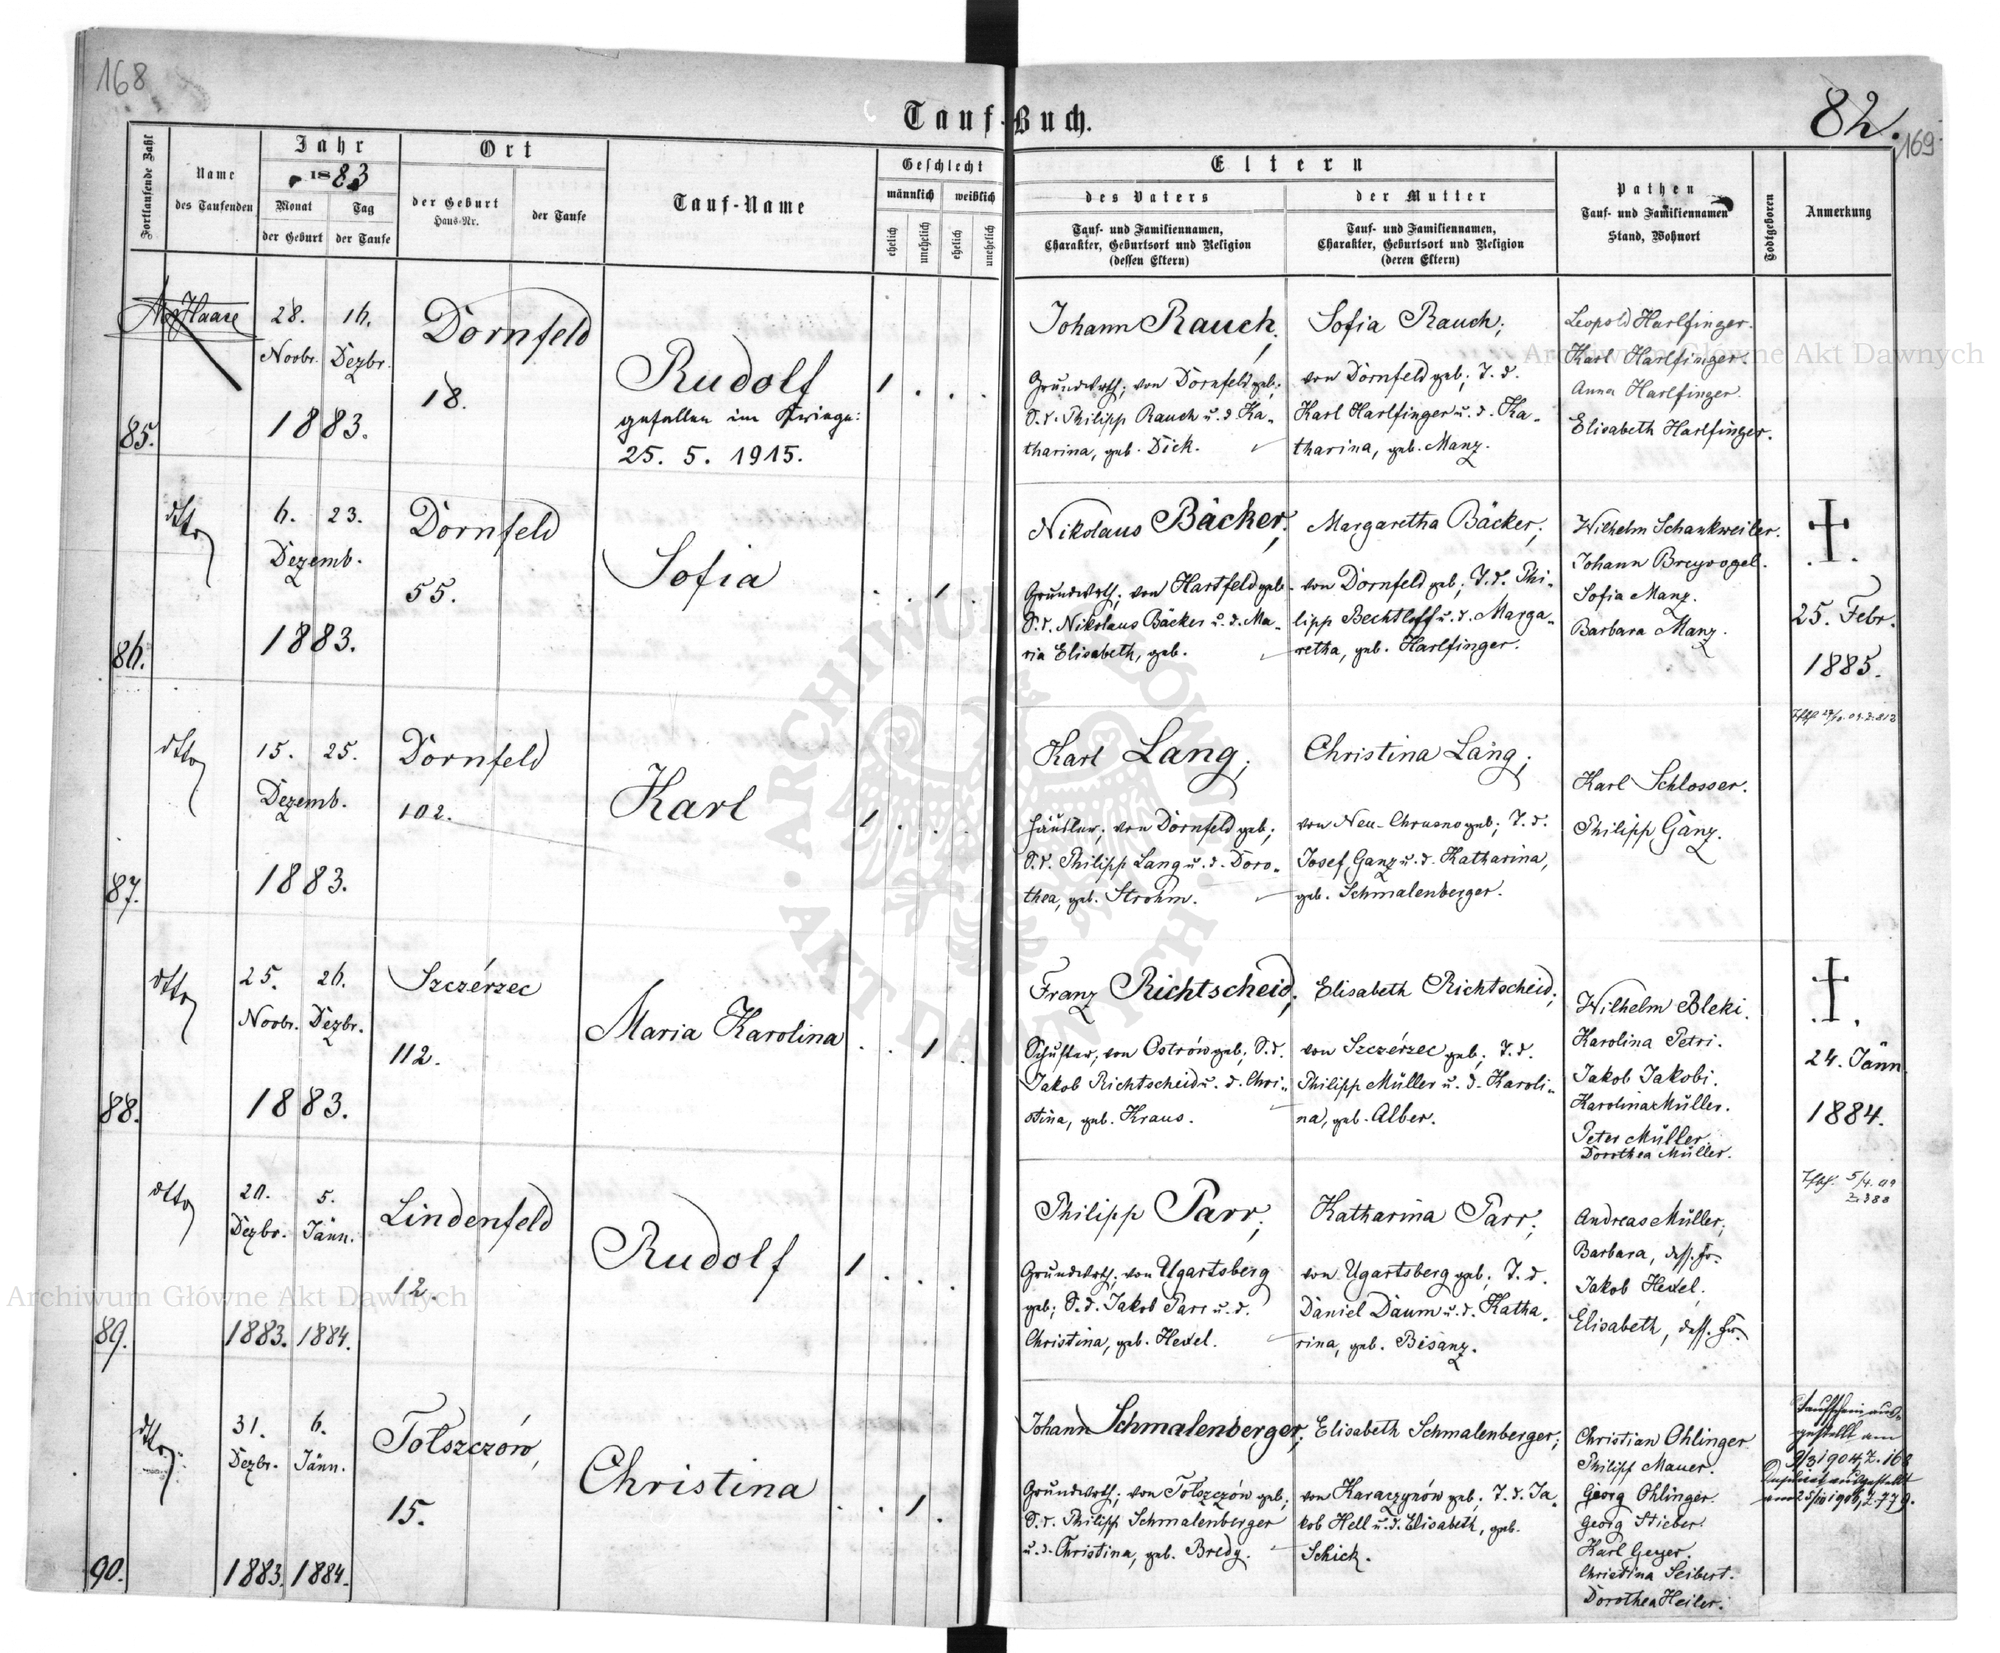 168
Tauf-Buch.
82.
169
Fortlaufende Zahl
Name
des Taufenden
Jahr
1883
Monat
der Geburt
Tag
der Taufe
Ort
der Geburt
Haus-Nr.
der Taufe
Tauf-Name
Geschlecht
männlich
weiblich
ehelich
unehelich
ehelich
unehelich
Eltern
des Vaters
Tauf- und Familiennamen,
Charakter, Geburtsort und Religion
(dessen Eltern)
der Mutter
Tauf- und Familiennamen,
Charakter, Geburtsort und Religion
(deren Eltern)
Pathen
Tauf- und Familiennamen
Stand, Wohnort
Todtgeboren
Anmerkung
85.
Haase
28. 16.
Novbr. Dezbr.
1883.
Dornfeld
18.
Rudolf
gefallen im Kriege:
25. 5. 1915.
1 . . .
Johann Rauch;
Grundwrth; von Dornfeld geb;
S. d. Philipp Rauch u. d. Ka-
tharina, geb. Dick.
Sofia Rauch;
von Dornfeld geb; T. d.
Karl Harlfinger u. d. Ka-
tharina, geb. Manz.
Leopold Harlfinger.
Karl Harlfinger.
Anna Harlfinger.
Elisabeth Harlfinger.
86.
dtto
6. 23.
Dezemb.
1883.
Dornfeld
55.
Sofia
. . 1 .
Nikolaus Bäcker;
Grundwrth; von Hartfeld geb
S. d. Nikolaus Bäcker u. d. Ma-
ria Elisabeth, geb.
Margaretha Bäcker;
von Dornfeld geb; T. d. Phi-
lipp Bechtloff u. d. Marga-
retha, geb. Harlfinger.
Wilhelm Schankweiler.
Johann Breyvogel.
Sofia Manz.
Barbara Manz.
25. Febr.
1885.
87.
dtto
15. 25.
Dezemb.
1883.
Dornfeld
102.
Karl
1 . . .
Karl Lang;
Häusler; von Dornfeld geb;
S. d. Philipp Lang u. d. Doro-
thea, geb. Strohm.
Christina Lang;
von Neu-Chrusno geb; T. d.
Josef Ganz u. d. Katharina,
geb. Schmalenberger.
Karl Schlosser.
Philipp Ganz.
88.
dtto
25. 26.
Novbr. Dezbr.
1883.
Szczérzec
112.
Maria Karolina
. . 1 .
Franz Richtscheid;
Schuster; von Ostrów geb; S. d.
Jakob Richtscheid u. d. Chri-
stina, geb. Kraus.
Elisabeth Richtscheid;
von Szczérzec geb; T. d.
Philipp Müller u. d. Karoli-
na, geb. Alber.
Wilhelm Bleki.
Karolina Petri.
Jakob Jakobi.
Karolina Müller.
Peter Müller.
Dorothea Müller.
24. Jänn
1884.
89.
dtto
20. 5.
Dezbr. Jänn.
1883. 1884.
Lindenfeld
12.
Rudolf
1 . . .
Philipp Parr;
Grundwrth; von Ugartsberg
geb; S. d. Jakob Parr u. d.
Christina, geb. Hexel.
Katharina Parr;
von Ugartsberg geb; T. d.
Daniel Daum u. d. Katha-
rina, geb. Bisanz.
Andreas Müller;
Barbara, dess. Fr.
Jakob Hexel;
Elisabeth, dess. Fr.
5/4. 09
Z. 388
90.
dtto
31. 6.
Dezbr. Jänn.
1883. 1884.
Tołszczów,
15.
Christina
. . 1 .
Johann Schmalenberger;
Grundwrth; von Tołszczów geb;
S. d. Philipp Schmalenberger
u. d. Christina, geb. Bredy.
Elisabeth Schmalenberger;
von Karaczynów geb; T. d. Ja-
kob Hell u. d. Elisabeth, geb.
Schick.
Christian Ohlinger
Philipp Mauer.
Georg Ohlinger.
Georg Stieber.
Karl Geyer.
Christina Seibert.
Dorothea Heiler.
Taufschein aus-
gestellt am
9/3 1904, Z. 168
Duplicat ausgestellt
am 25/10 1906, Z. 779.
Archiwum Główne Akt Dawnych
Archiwum Główne Akt Dawnych
ARCHIWUM GŁÓWNE AKT DAWNYCH